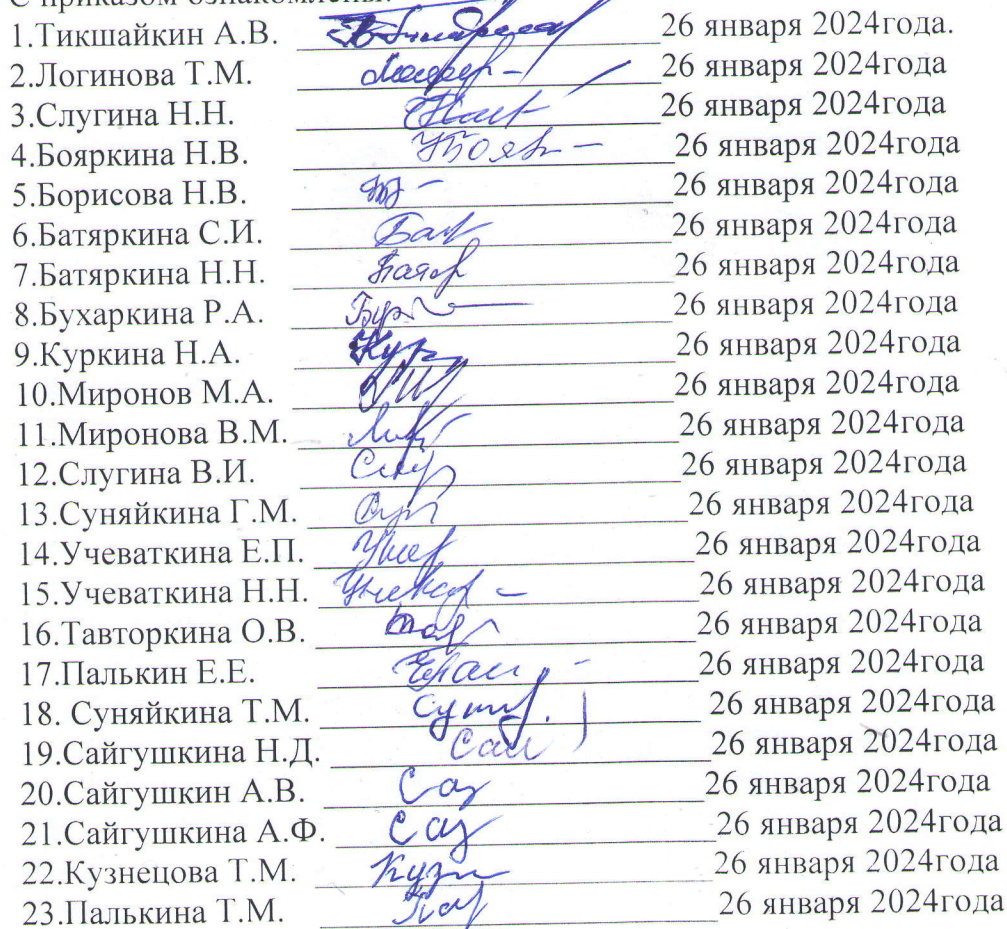 С приказом ознакомлены:
1.Тикшайкин А.В. 26 января 2024года.
2.Логинова Т.М. 26 января 2024года
3.Слугина Н.Н. 26 января 2024года
4.Бояркина Н.В. 26 января 2024года
5.Борисова Н.В. 26 января 2024года
6.Батяркина С.И. 26 января 2024года
7.Батяркина Н.Н. 26 января 2024года
8.Бухаркина Р.А. 26 января 2024года
9.Куркина Н.А. 26 января 2024года
10.Миронов М.А. 26 января 2024года
11.Миронова В.М. 26 января 2024года
12.Слугина В.И. 26 января 2024года
13.Суняйкина Г.М. 26 января 2024года
14.Учеваткина Е.П. 26 января 2024года
15.Учеваткина Н.Н. 26 января 2024года
16.Тавторкина О.В. 26 января 2024года
17.Палькин Е.Е. 26 января 2024года
18. Суняйкина Т.М. 26 января 2024года
19.Сайгушкина Н.Д. 26 января 2024года
20.Сайгушкин А.В. 26 января 2024года
21.Сайгушкина А.Ф. 26 января 2024года
22.Кузнецова Т.М. 26 января 2024года
23.Палькина Т.М. 26 января 2024года